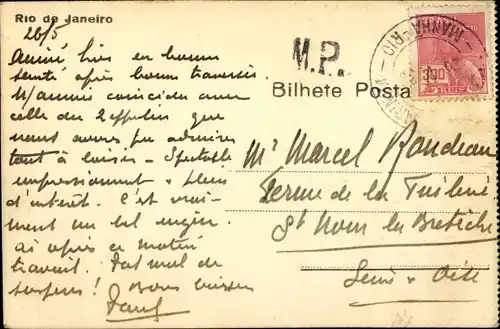 Rio de Janeiro
26/5
Arrivé hier en bonne
santé après bonne traversée.
N/ arrivée coincidee avec
celle du Zeppelin que
nous avons pu admirer
tout à loisir – Spectacle
impressionnant & plein
d'intérêt. C'est vrai-
ment un bel engin.
ai après ce matin
travail. Pas mal de
Bons baisers
M.P.
Bilhete Posta
300
REIS
MANHA-RIO
Mr Marcel Rondeau
Ferme de la Tuilerie
St Nom la Bretèche
Seine & Oise